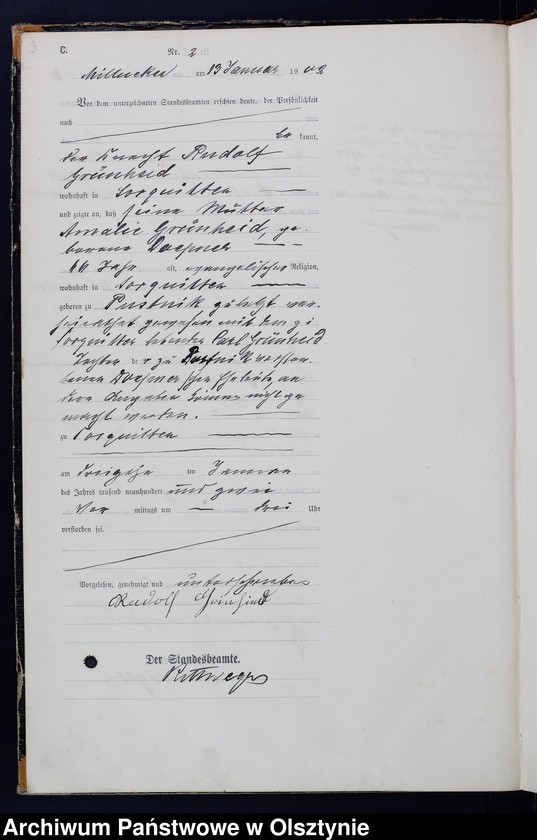 3
C.
Nr. 2
Millucken am 13 Januar 1902
Vor dem unterzeichneten Standesbeamten erschien heute, der Persönlichkeit
nach
be kannt,
der Knecht Rudolf
Grünheid
wohnhaft in Sorquitten
und zeigte an, daß seine Mutter
Amalie Grünheid, ge-
borene Doepner
66 Jahr alt, evangelischer Religion,
wohnhaft in Sorquitten
geboren zu Pustnik zuletzt ver-
heirathet gewesen mit dem zu
Sorquitten Carl Grünheid
Tochter der zu Pustnik verstor-
benen Doepner'schen Eheleute,
Angaben nicht ge-
macht werden.
zu Sorquitten
am dreizehn ten Januar
des Jahres tausend neunhundert und zwei
Vor mittags um drei Uhr
verstorben sei.
Vorgelesen, genehmigt und unterschrieben
Rudolf Grünheid
Der Standesbeamte.
Archiwum Państwowe w Olsztynie